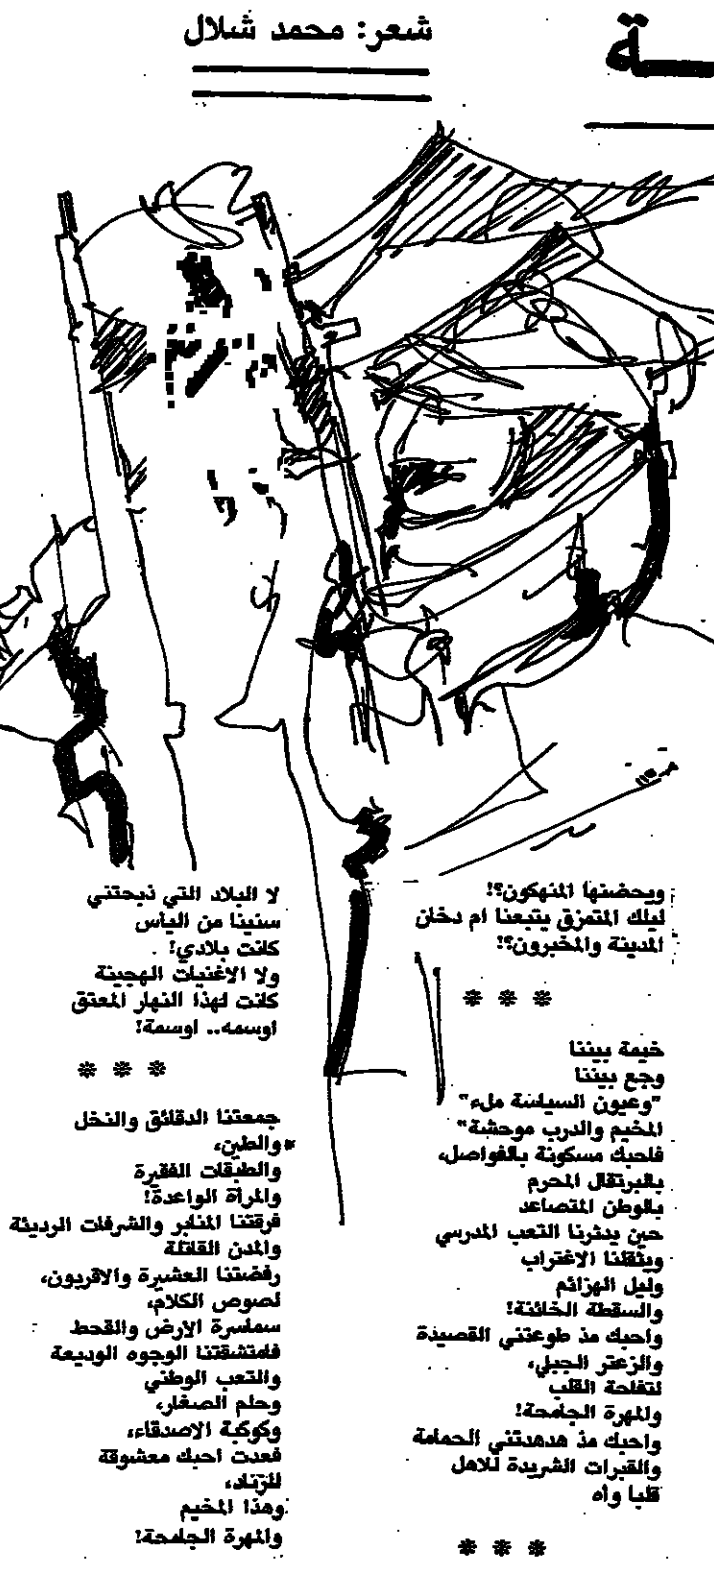 ـة
شعر: محمد شلال
ويحضنها المنهكون؟!
ليلك المتمزق يتبعنا ام دخان
المدينة والمخبرون؟!
* * *
خيمة بيننا
وجع بيننا
"وعيون السياسة ملء"
المخيم والدرب موحشة"
فاحبك مسكونة بالفواصل،
بالبرتقال المحرم
بالوطن المتصاعد
حين يدثرنا التعب المدرسي
ويثقلنا الاغتراب
وليل الهزائم
والسقطة الخائنة!
واحبك مذ طوعتني القصيدة
والزعتر الجبلي،
لتفاحة القلب
والمهرة الجامحة!
واحبك مذ هدهدتني الحمامة
والقبرات الشريدة للاهل
قلبا وآه
* * *
لا البلاد التي ذبحتني
سنينا من الياس
كانت بلادي!
ولا الاغنيات الهجينة
كانت لهذا النهار المعتق
اوسمه.. اوسمة!
* * *
جمعتنا الدقائق والنخل
والطين،
والطبقات الفقيرة
والمرأة الواعدة!
فرقتنا المنابر والشرفات الرديئة
والمدن القاتلة
رفضتنا العشيرة والاقربون،
لصوص الكلام،
سماسرة الارض والقحط
فامتشقتنا الوجوه الوديعة
والتعب الوطني
وحلم الصغار،
وكوكبة الاصدقاء،
فعدت احبك معشوقة
للزناد،
وهذا المخيم
والمهرة الجامحة!